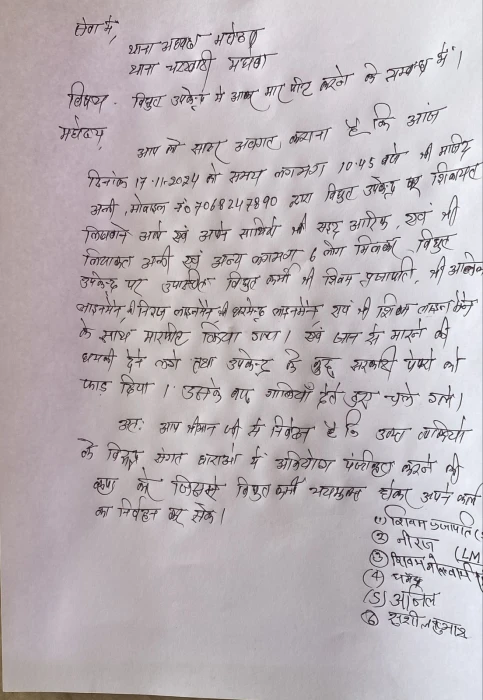 सेवा में,
थाना अध्यक्ष महोदय
थाना चरखारी महोबा
विषय - विद्युत उपकेन्द्र में आकर मार पीट करने के सम्बन्ध में।
महोदय,
आप को सादर अवगत कराना है कि आज
दिनांक 17-11-2024 को समय लगभग 10:45 बजे श्री
अली, मोबाइल नं० 7068247890 द्वारा विद्युत उपकेन्द्र पर शिकायत
लिखवाने आये एवं अपने साथियों श्री आरिफ, एवं श्री
लियाकत अली एवं अन्य लगभग 6 लोग मिलकर, विद्युत
उपकेन्द्र पर उपस्थित विद्युत कर्मी श्री शिवम प्रजापति, श्री
लाइनमैन श्री नीरज लाइनमैन श्री धर्मेन्द्र लाइनमैन एवं श्री शिवम लाइनमैन
के साथ मारपीट किया गया। एवं जान से मारने की
धमकी देने लगे तथा उपकेन्द्र के कुछ सरकारी पेपरों को
फाड़ दिया। उसके बाद गालियाँ देते हुए चले गये।
अतः आप श्रीमान जी से निवेदन है कि उक्त व्यक्तियों
के विरुद्ध संगत धाराओं में अभियोग पंजीकृत करने की
कृपा करें जिससे विद्युत कर्मी भयमुक्त होकर अपने कार्य
का निर्वहन कर सके।
(1) शिवम प्रजापति
(2) नीरज (LM
(3) शिवम गोस्वामी
(4) धर्मेन्द्र
(5) अनिल
(6) सुशील कुमार